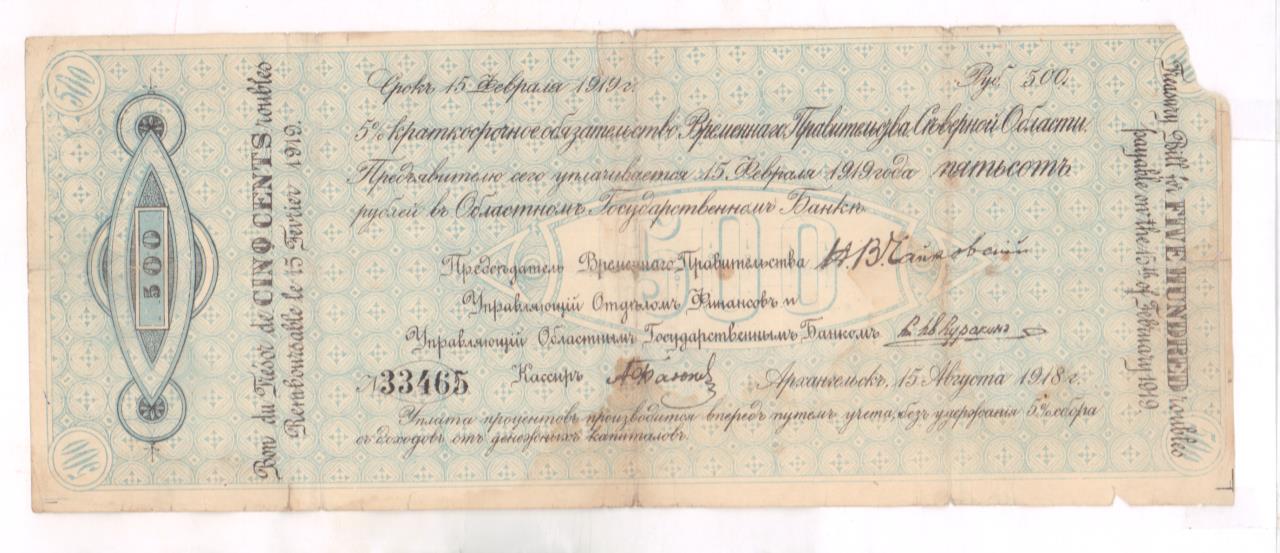 500
Bon du Trésor de CINQ CENTS roubles
Remboursable le 15 Février 1919.
Срокъ 15 Февраля 1919 г. Руб. 500.
5% краткосрочное обязательство Временнаго Правительства Сѣверной Области.
Предъявителю сего уплачивается 15 Февраля 1919 года пятьсотъ
рублей въ Областномъ Государственномъ Банкѣ.
500
Предсѣдатель Временнаго Правительства Н. В. Чайковскій
Управляющій Отдѣломъ Финансовъ и
Управляющій Областнымъ Государственнымъ Банкомъ Куракинъ
№ 33465 Кассиръ Архангельскъ, 15 Августа 1918 г.
Уплата процентовъ производится впередъ путемъ учета, безъ удержанія 5% сбора
съ доходовъ отъ денежныхъ капиталовъ.
Treasury Bill for FIVE HUNDRED roubles
payable on the 15th of February 1919.
500
500
500